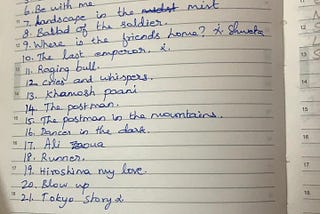 6. Be with me.
7. Landscape in the mist
8. Ballad of the soldier.
9. Where is the friends home? &. Shweta
10. The last emperor. &.
11. Raging bull.
12. cries and whispers.
13. Khamosh paani
14. The postman.
15. The postman in the mountains.
16. Dancer in the dark.
17. Ali Zaoua
18. Runner.
19. Hiroshima my love.
20. Blow up
21. Tokyo story &